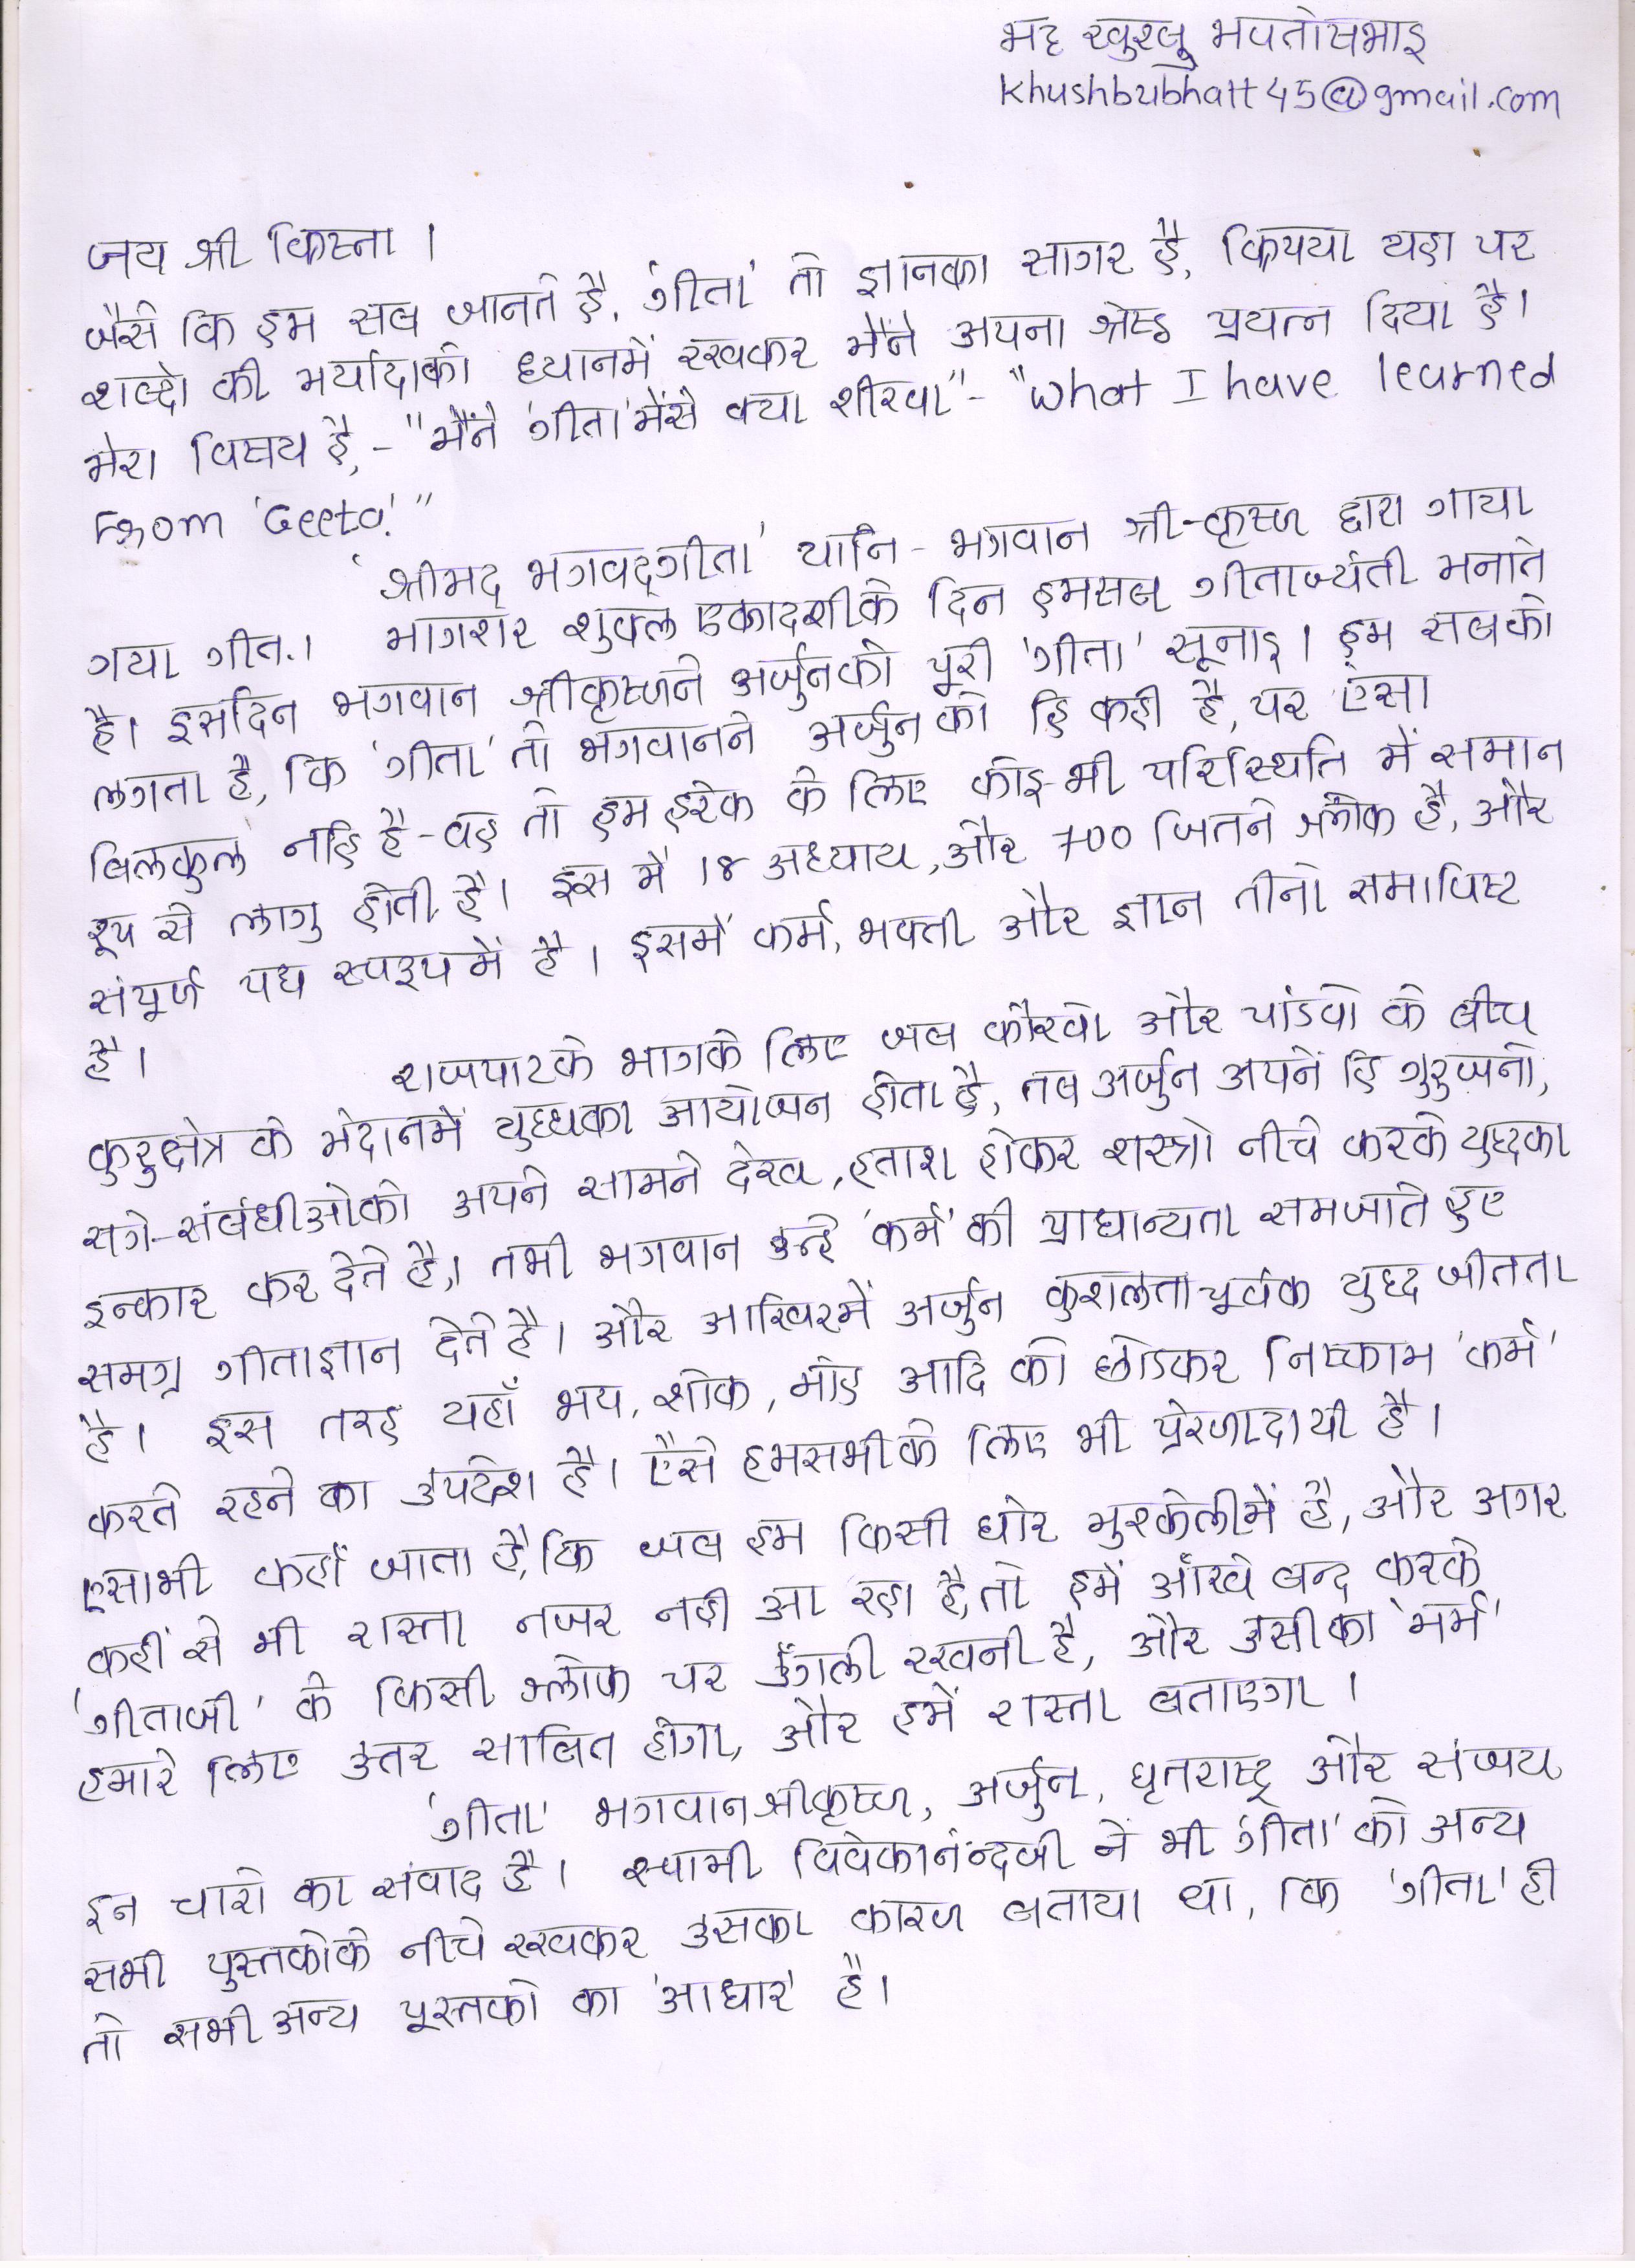 भट्ट खुश्बु भवतोषभाइ
khushbubhatt45@gmail.com
जय श्री क्रिष्ना ।
जैसे कि हम सब जानते है, 'गीता' तो ज्ञानका सागर है, क्रिपया यहा पर
शब्दो की मर्यादाको ध्यानमें रखकर मैंने अपना श्रेष्ठ प्रयत्न दिया है।
मेरा विषय है, - "मैंने 'गीता'मेंसे क्या शीखा" - "What I have learned
From 'Geeta'."
'श्रीमद् भगवद्गीता' यानि - भगवान श्री-कृष्ण द्वारा गाया
गया गीत.। मागशर शुक्ल एकादशीके दिन हमसब गीताजयंती मनाते
है। इसदिन भगवान श्रीकृष्णने अर्जुनको पूरी 'गीता' सूनाइ। हम सबको
लगता है, कि 'गीता' तो भगवानने अर्जुन को हि कही है, पर एसा
बिलकुल नहि है - वह तो हम हरेक के लिए कोइ-भी परिस्थिति में समान
रूप से लागु होती है। इस में 18 अध्याय, और 700 जितने श्लोक है, और
संपूर्ण पद्य स्वरूपमें है। इसमें कर्म, भक्ती और ज्ञान तीनो समाविष्ट
है।
राजपाटके भागके लिए जब कौरवो और पांडवो के बीच
कुरुक्षेत्र के मेदानमें युध्धका आयोजन होता है, तब अर्जुन अपने हि गुरुजनो,
सगे-संबंधीओको अपने सामने देख, हताश होकर शस्त्रो नीचे करके युद्धका
इन्कार कर देते है,। तभी भगवान उन्हे 'कर्म' की प्राधान्यता समजाते हुए
समग्र गीताज्ञान देते है। और आखिरमें अर्जुन कुशलतापूर्वक युद्ध जीतता
है। इस तरह यहाँ भय, शोक, मोह आदि को छोडकर निष्काम 'कर्म'
करते रहने का उपदेश है। एैसे हमसभीके लिए भी प्रेरणादायी है।
एसाभी कहाँ जाता है, कि जब हम किसी घोर मुश्केलीमें है, और अगर
कहीं से भी रास्ता नजर नही आ रहा है, तो हमें आँखे बन्द करके
'गीताजी' के किसी श्लोक पर उँगली रखनी है, और उसीका 'मर्म'
हमारे लिए उतर साबित होगा, और हमें रास्ता बताएगा ।
'गीता' भगवानश्रीकृष्ण, अर्जुन, धृतराष्ट्र और संजय
इन चारो का संवाद है। स्वामी विवेकानंन्दजी ने भी 'गीता' को अन्य
सभी पुस्तकोके नीचे रखकर उसका कारण बताया था, कि 'गीता' ही
तो सभी अन्य पूस्तको का 'आधार' है।